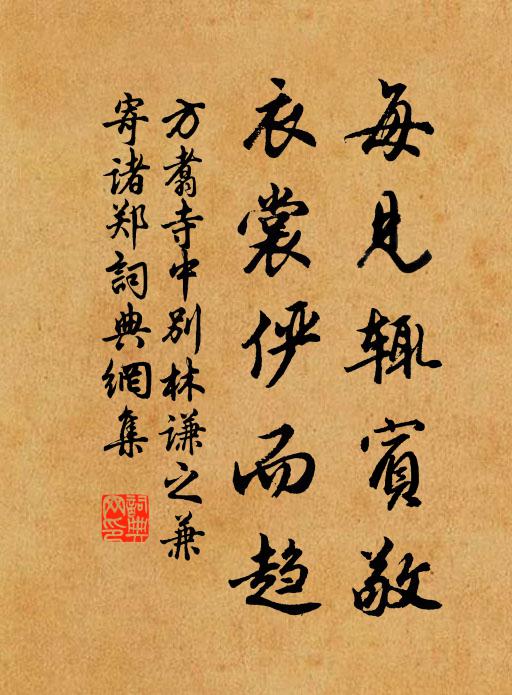 每见辄賓敬
衣裳俨而趋
方翥寺中别林谦之兼
寄诸郑詞典網集
詞典網印